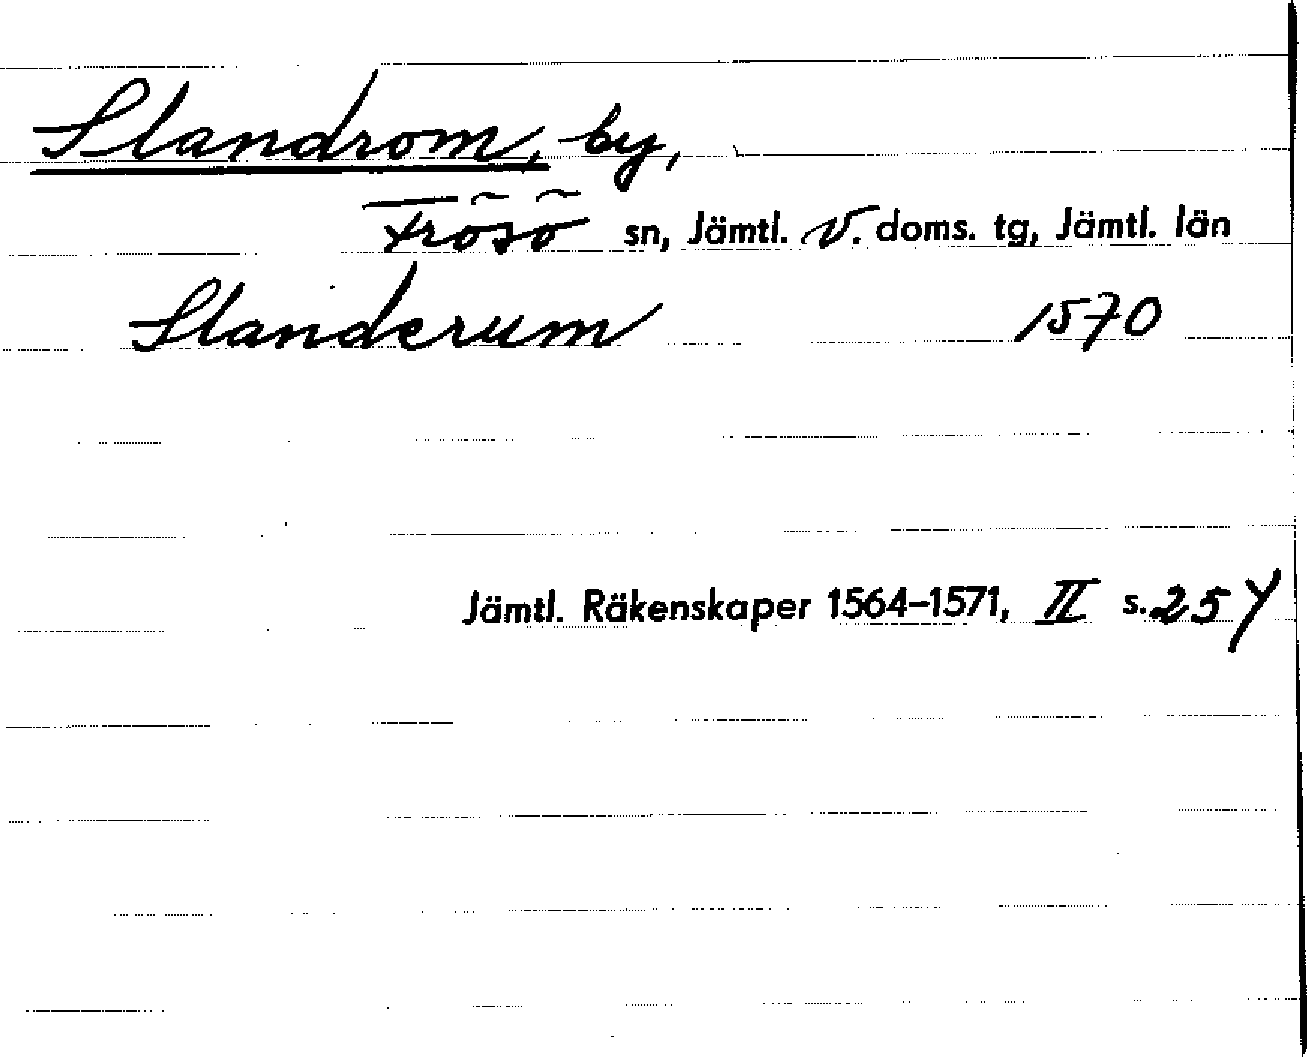 Slandrom, by,
Frösö sn, Jämtl. V. doms. tg, Jämtl. län
Slanderum 1570
Jämtl. Räkenskaper 1564–1571, II s. 257